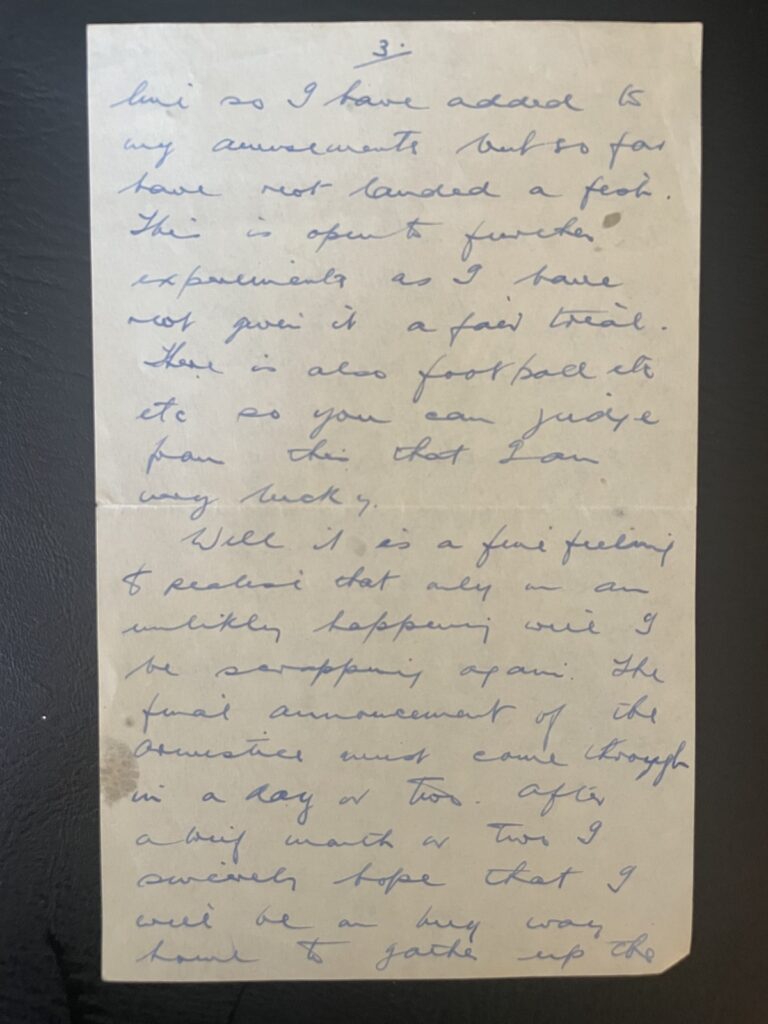 3.
line so I have added to
my amusements but so far
have not landed a fish.
This is open to further
experiments as I have
not given it a fair trial.
There is also football etc
etc so you can judge
from this that I am
very lucky.
Well it is a fine feeling
to realise that only in an
unlikely happening will I
be scrapping again. The
final announcement of the
armistice must come through
in a day or two. After
a brief month or two I
sincerely hope that I
will be on my way
home to gather up the